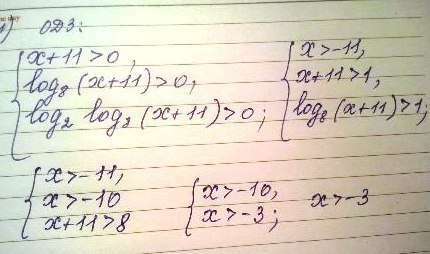 1) ОДЗ:
{ x+11>0,
log₈(x+11)>0,
log₂ log₈(x+11)>0;
{ x>-11,
x+11>1,
log₈(x+11)>1;
{ x>-11,
x>-10
x+11>8
{ x>-10,
x>-3;
x>-3